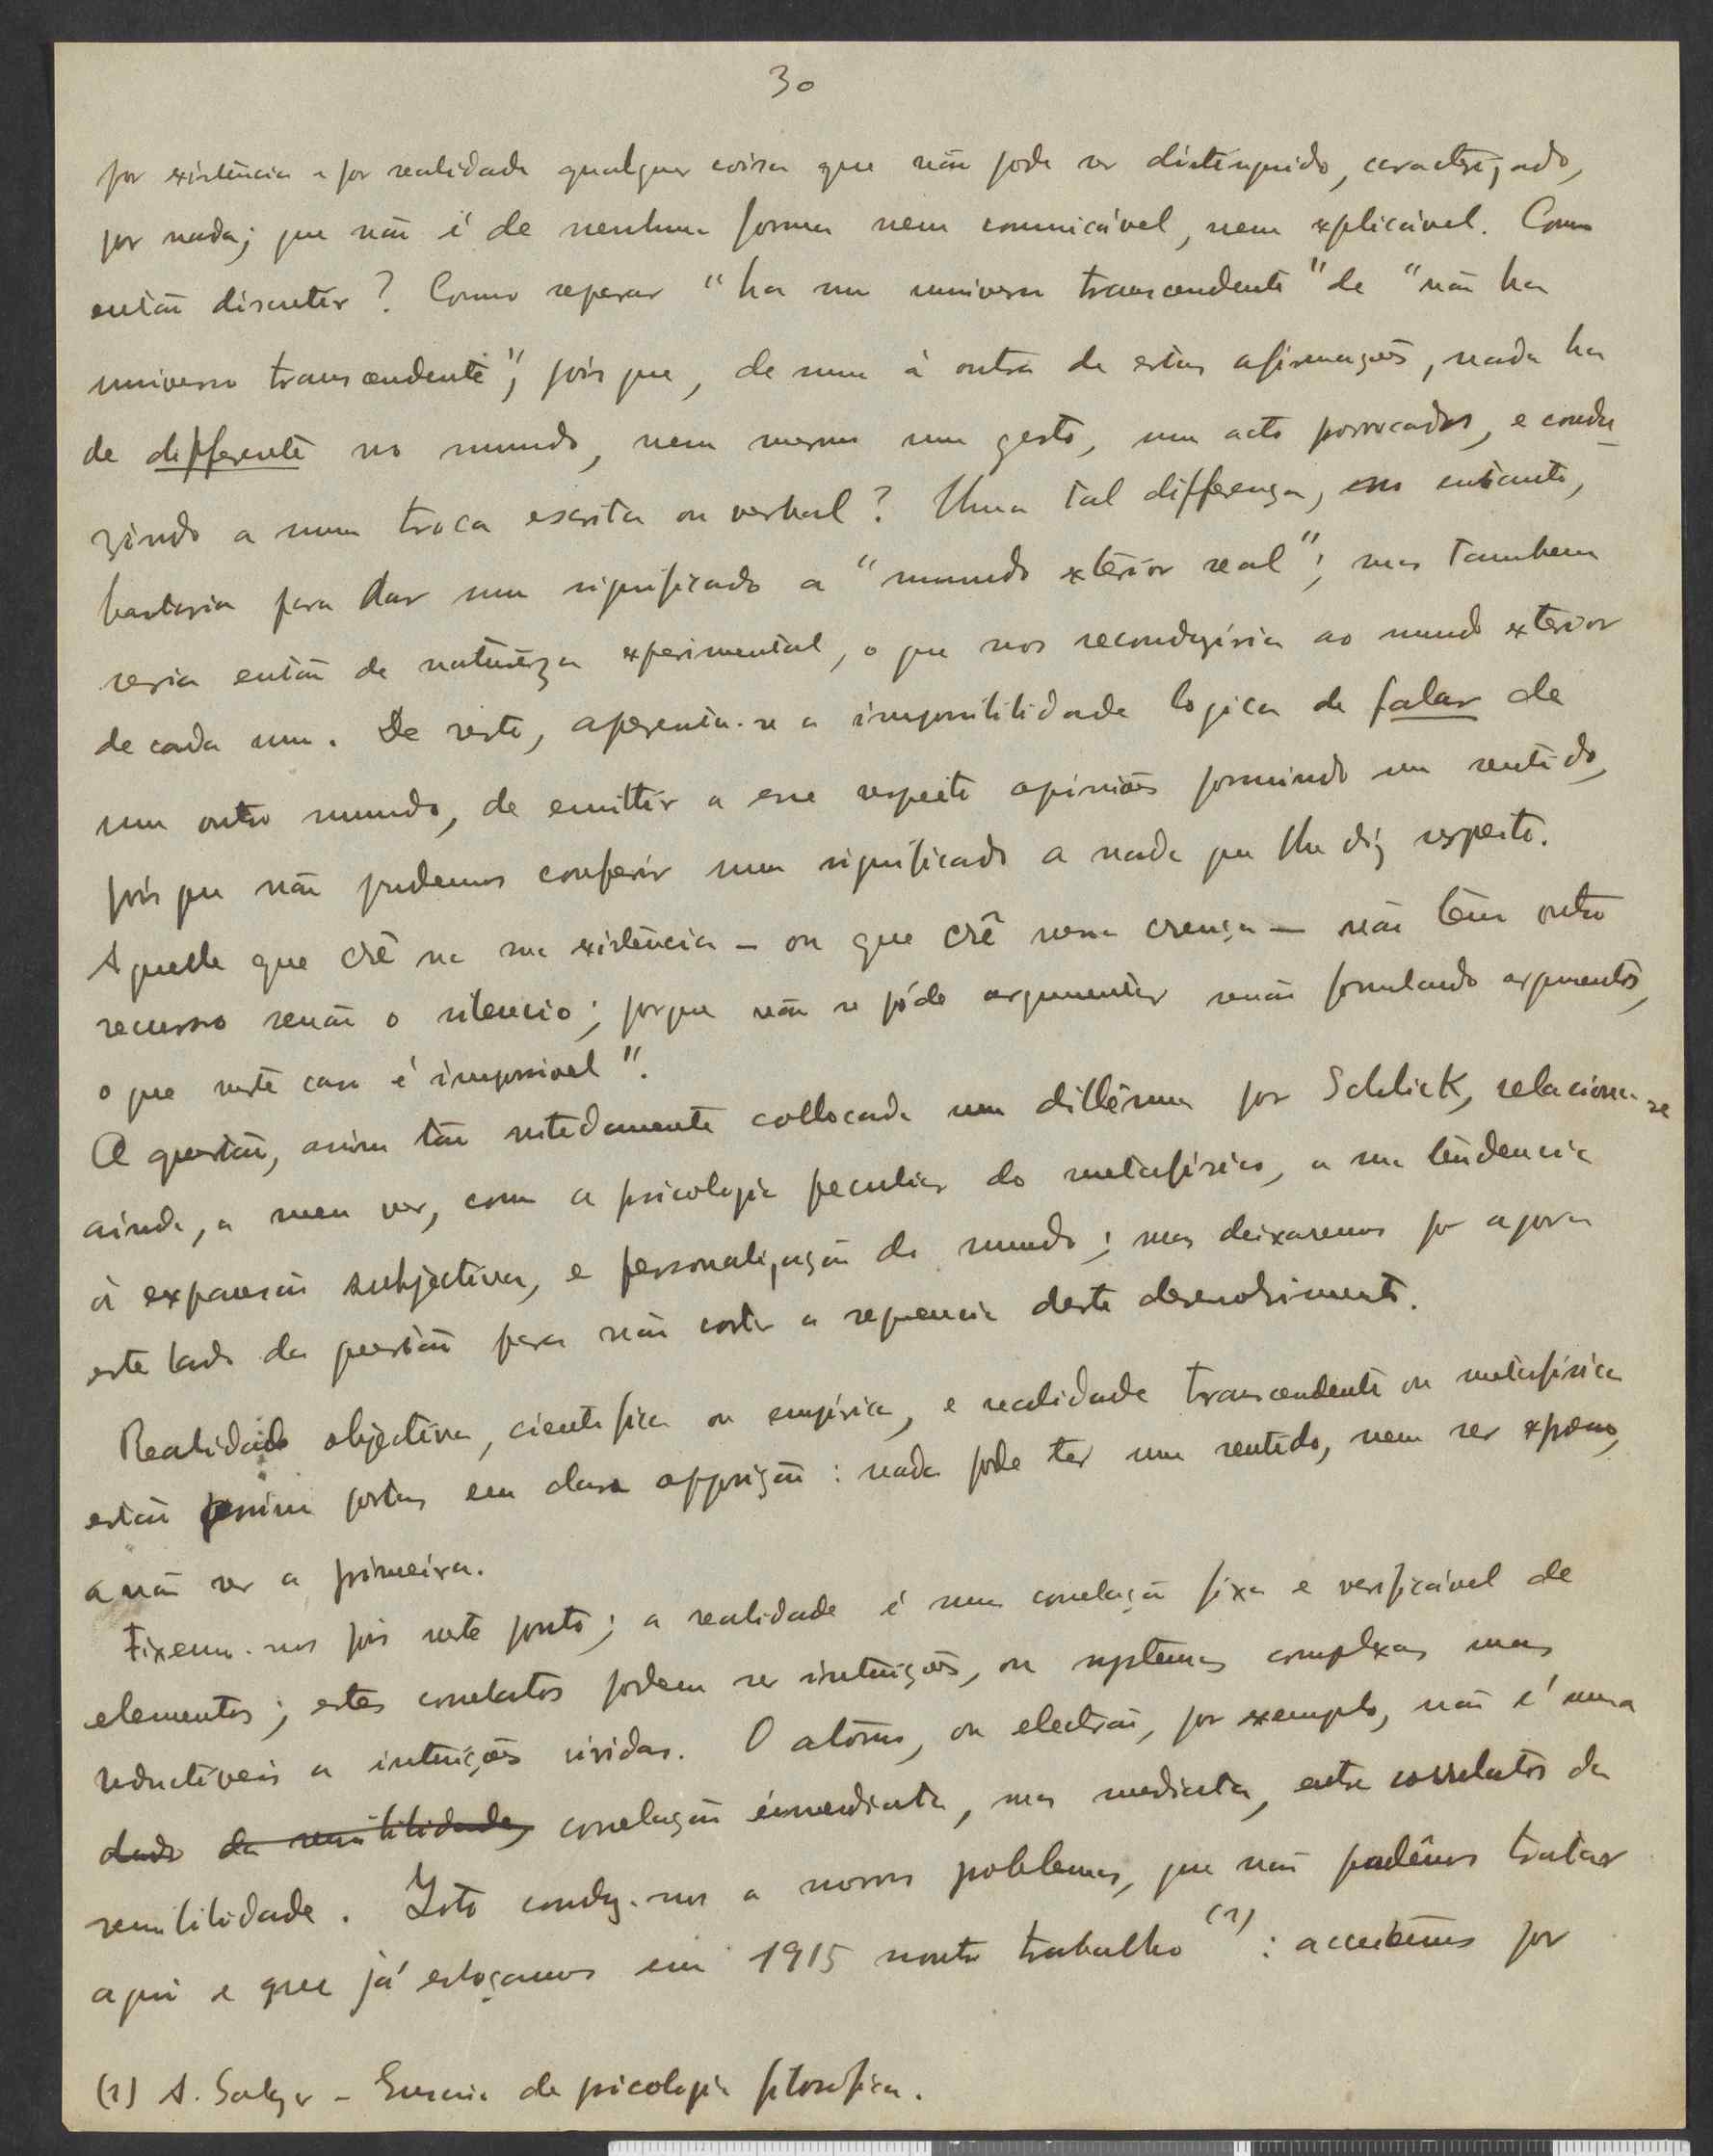 30
por existência e por realidade qualquer coisa que não pode ser distinguido, caracterizado,
por nada; que não é de nenhuma forma nem comunicável, nem explicável. Como
então discutir? Como separar "ha um universo transcendente" de "não ha
universo transcendente", pois que, de uma á outra de estas afirmações, nada ha
de differente no mundo, nem mesmo um gesto, um acto provocados, e condu-
zindo a uma troca escrita ou verbal? Uma tal differença, no entanto,
bastaria para dar um significado a "mundo exterior real"; mas tambem
seria então de natureza experimental, o que nos reconduziria ao mundo exterior
de cada um. De resto, apresenta-se a impossibilidade logica de falar de
um outro mundo, de emittir a esse respeito opiniões possuindo um sentido,
pois que não podemos conferir um significado a nada que lhe diz respeito.
Aquelle que crê na sua existência – ou que crê nessa crença – não têm outro
recurso senão o silencio; porque não se póde argumentar senão formulando argumentos,
o que neste caso é impossivel".
A questão, assim tão nitidamente collocada num dilêmma por Schlick, relaciona-se
ainda, a meu ver, com a psicologia peculiar do metafísico, a sua tendencia
á expansão subjectiva, e personalização do mundo; mas deixaremos por agora
este lado da questão para não cortar a sequencia deste desenvolvimento.
Realidade objectiva, cientifica ou empírica, e realidade transcendente ou metafísica
estão assim postas em clara opposição: nada pode ter um sentido, nem ser expresso,
a não ser a primeira.
Fixemo-nos pois neste ponto; a realidade é uma correlação fixa e verificável de
elementos; estes correlatos podem ser intuições, ou systemas complexos mas
reductiveis a intuições vividas. O atomo, ou electrão, por exemplo, não é uma
dado da sensibilidade, correlação immediata, mas mediata, entre correlatos da
sensibilidade. Isto conduz-nos a novos problemas, que não podêmos tratar
aqui e que já esboçamos em 1915 noutro trabalho (1): accentuemos por
(1) A. Salazar – Ensaio de psicologia filosofica.